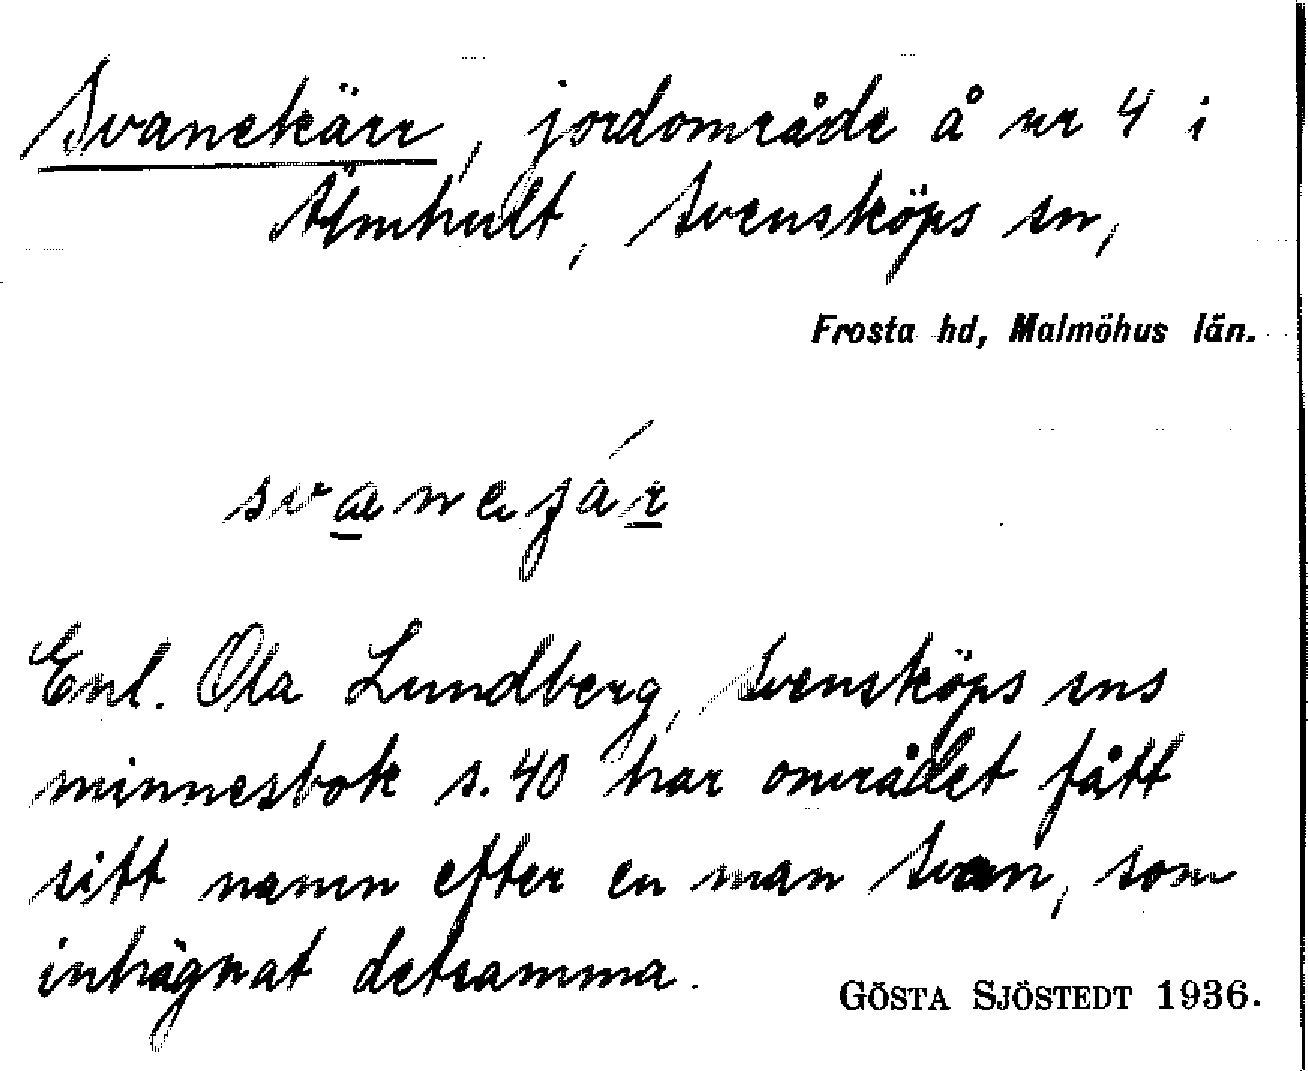 Svanekärr, jordområde å nr 4 i
Älmhult, Svensköps sn,
Frosta hd, Malmöhus län.
svanejár
Enl. Ola Lundberg, Svensköps sns
minnesbok s. 40 har området fått
sitt namn efter en man Svan, som
inhägnat detsamma.
GÖSTA SJÖSTEDT 1936.